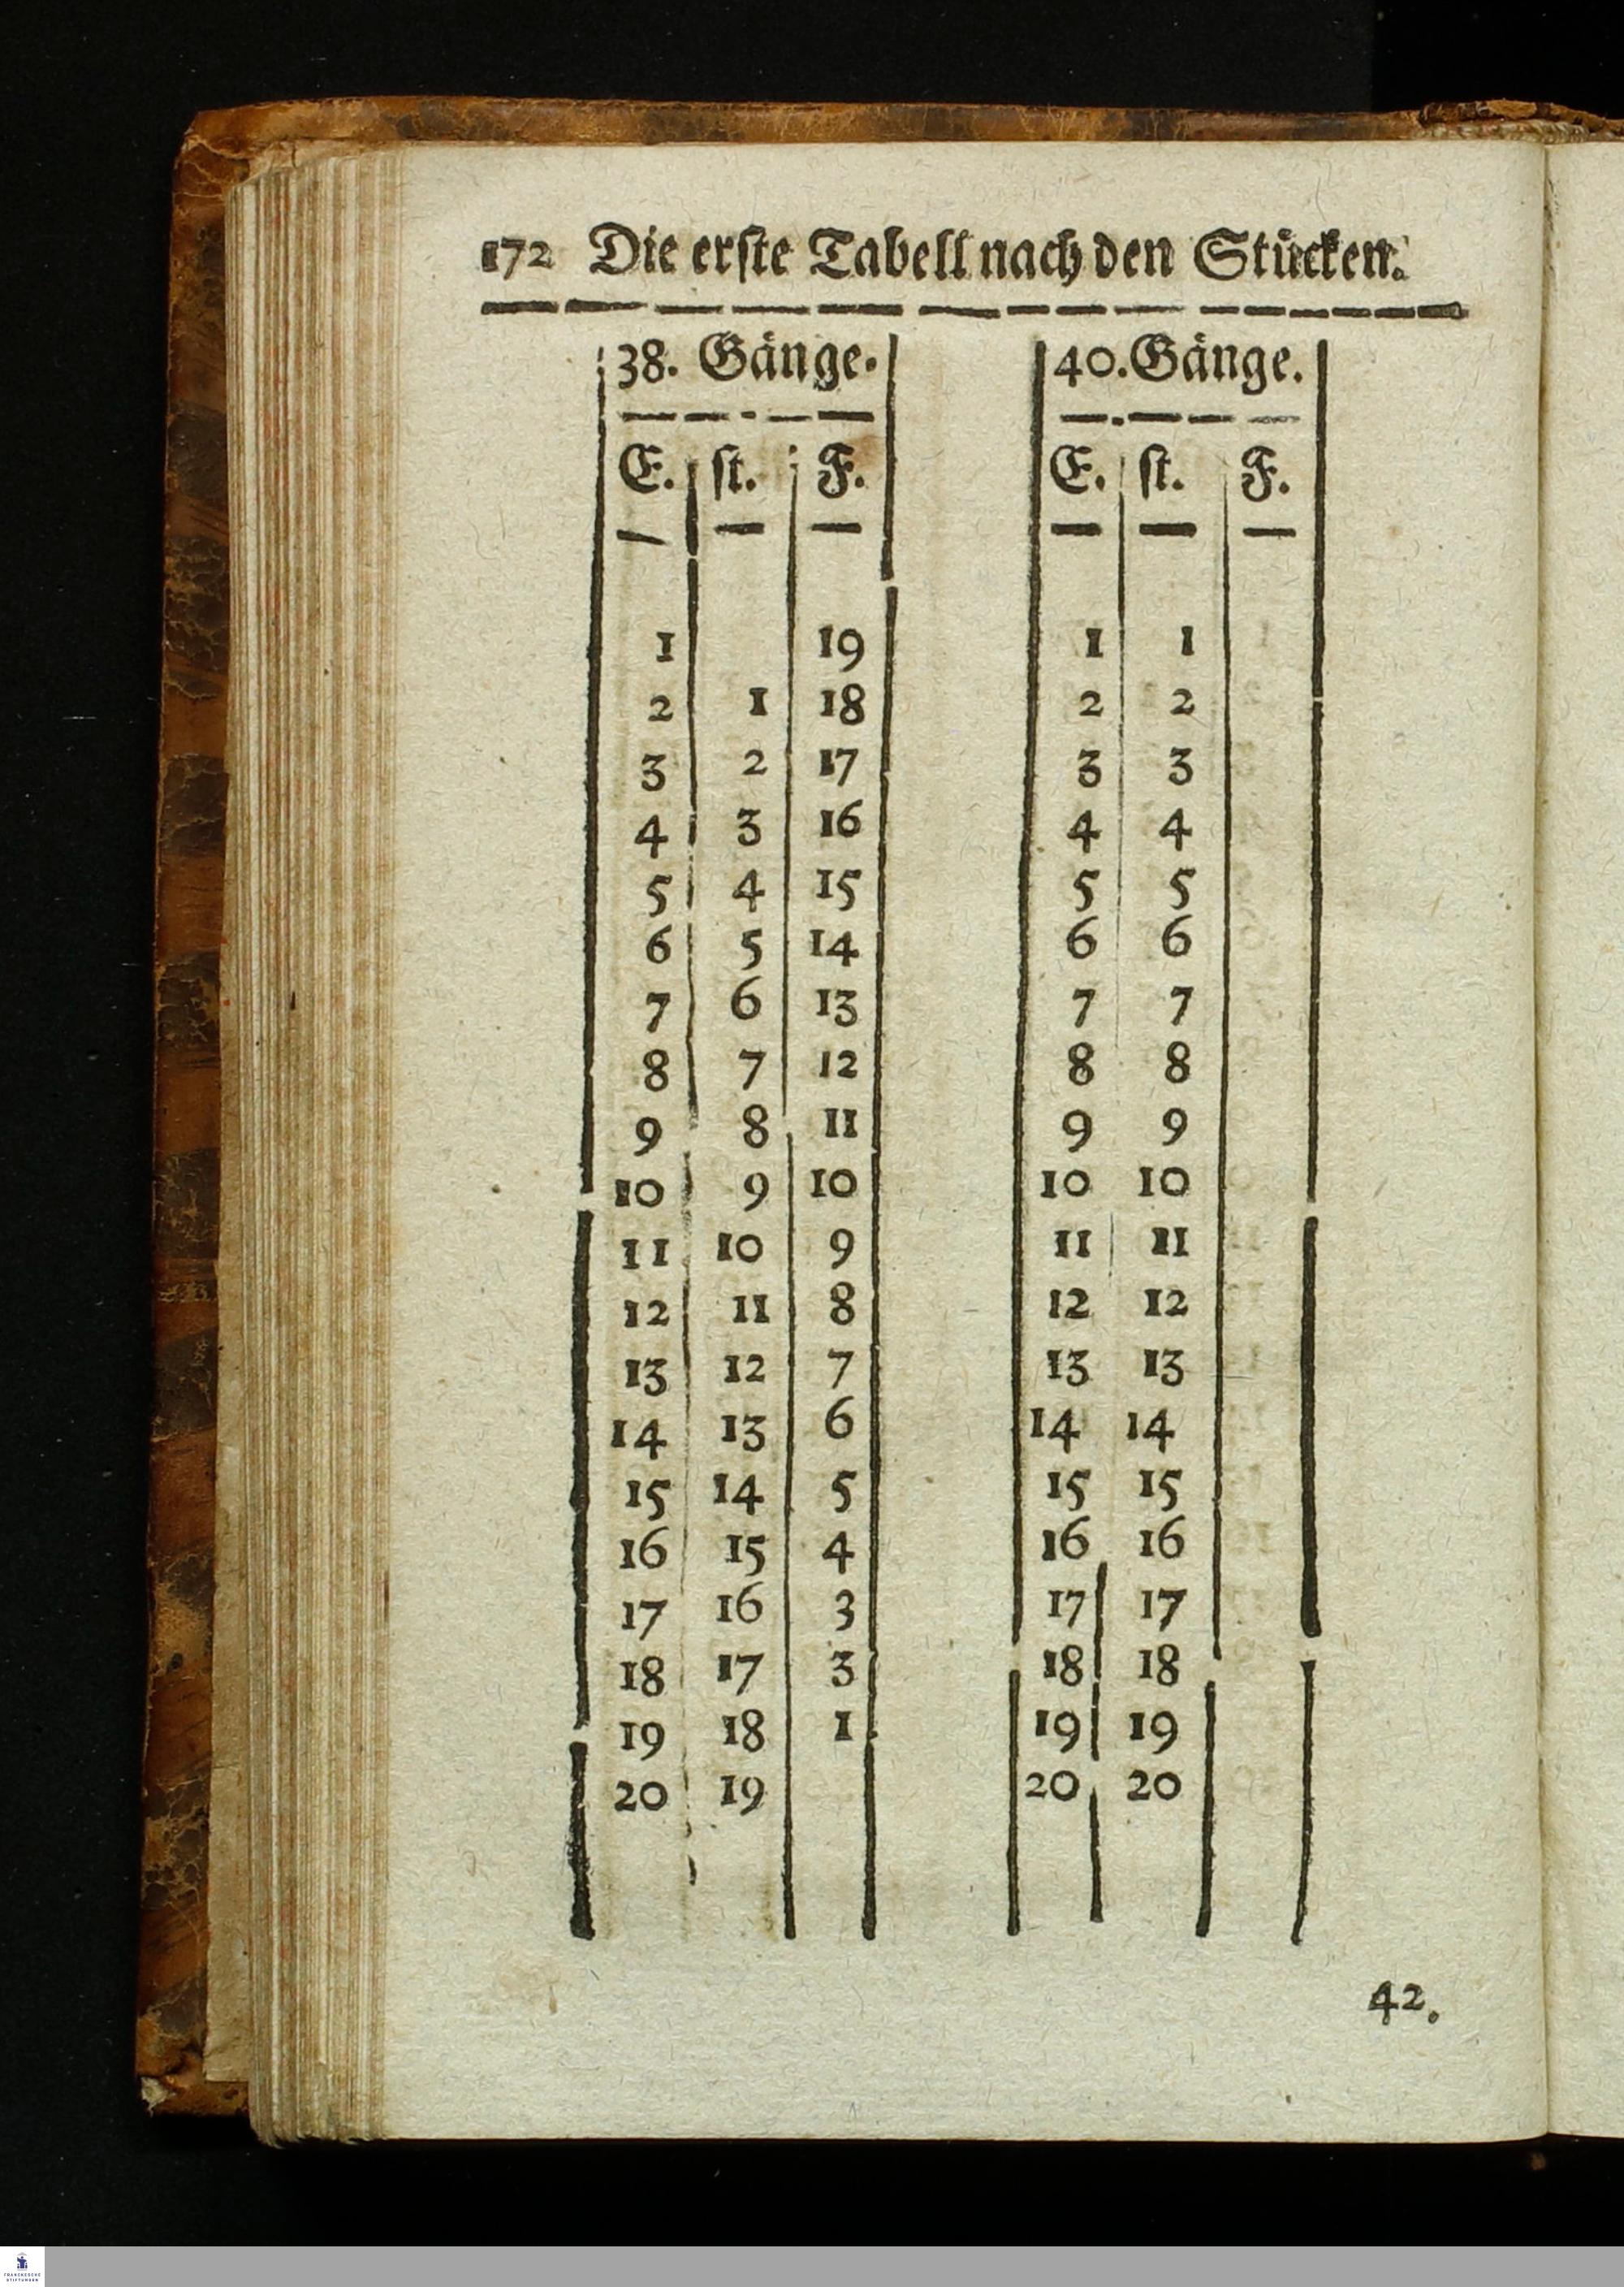 172 Die erste Tabell nach den Stücken.
38. Gänge.
E. st. F.
1 19
2 1 18
3 2 17
4 3 16
5 4 15
6 5 14
7 6 13
8 7 12
9 8 11
10 9 10
11 10 9
12 11 8
13 12 7
14 13 6
15 14 5
16 15 4
17 16 3
18 17 3
19 18 1
20 19
40. Gänge.
E. st. F.
1 1
2 2
3 3
4 4
5 5
6 6
7 7
8 8
9 9
10 10
11 11
12 12
13 13
14 14
15 15
16 16
17 17
18 18
19 19
20 20
42.
FRANCKESCHE
STIFTUNGEN